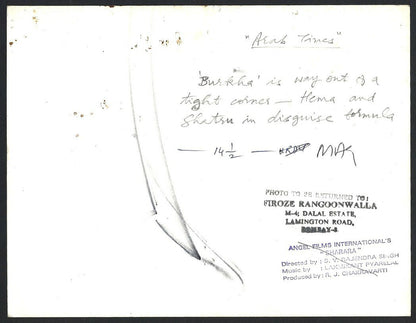 "Arab Times"
'Burkha' is way out of a
tight corner — Hema and
Shatru in disguise formula
— 14 1/2 —
PHOTO TO BE RETURNED TO:
FIROZE RANGOONWALLA
M-4; DALAL ESTATE,
LAMINGTON ROAD,
BOMBAY-8
ANGEL FILMS INTERNATIONAL'S
"SHARARA"
Directed by : S. V. RAJENDRA SINGH
Music by : LAXMIKANT PYARELAL
Produced by : R. J. CHAKRAVARTI